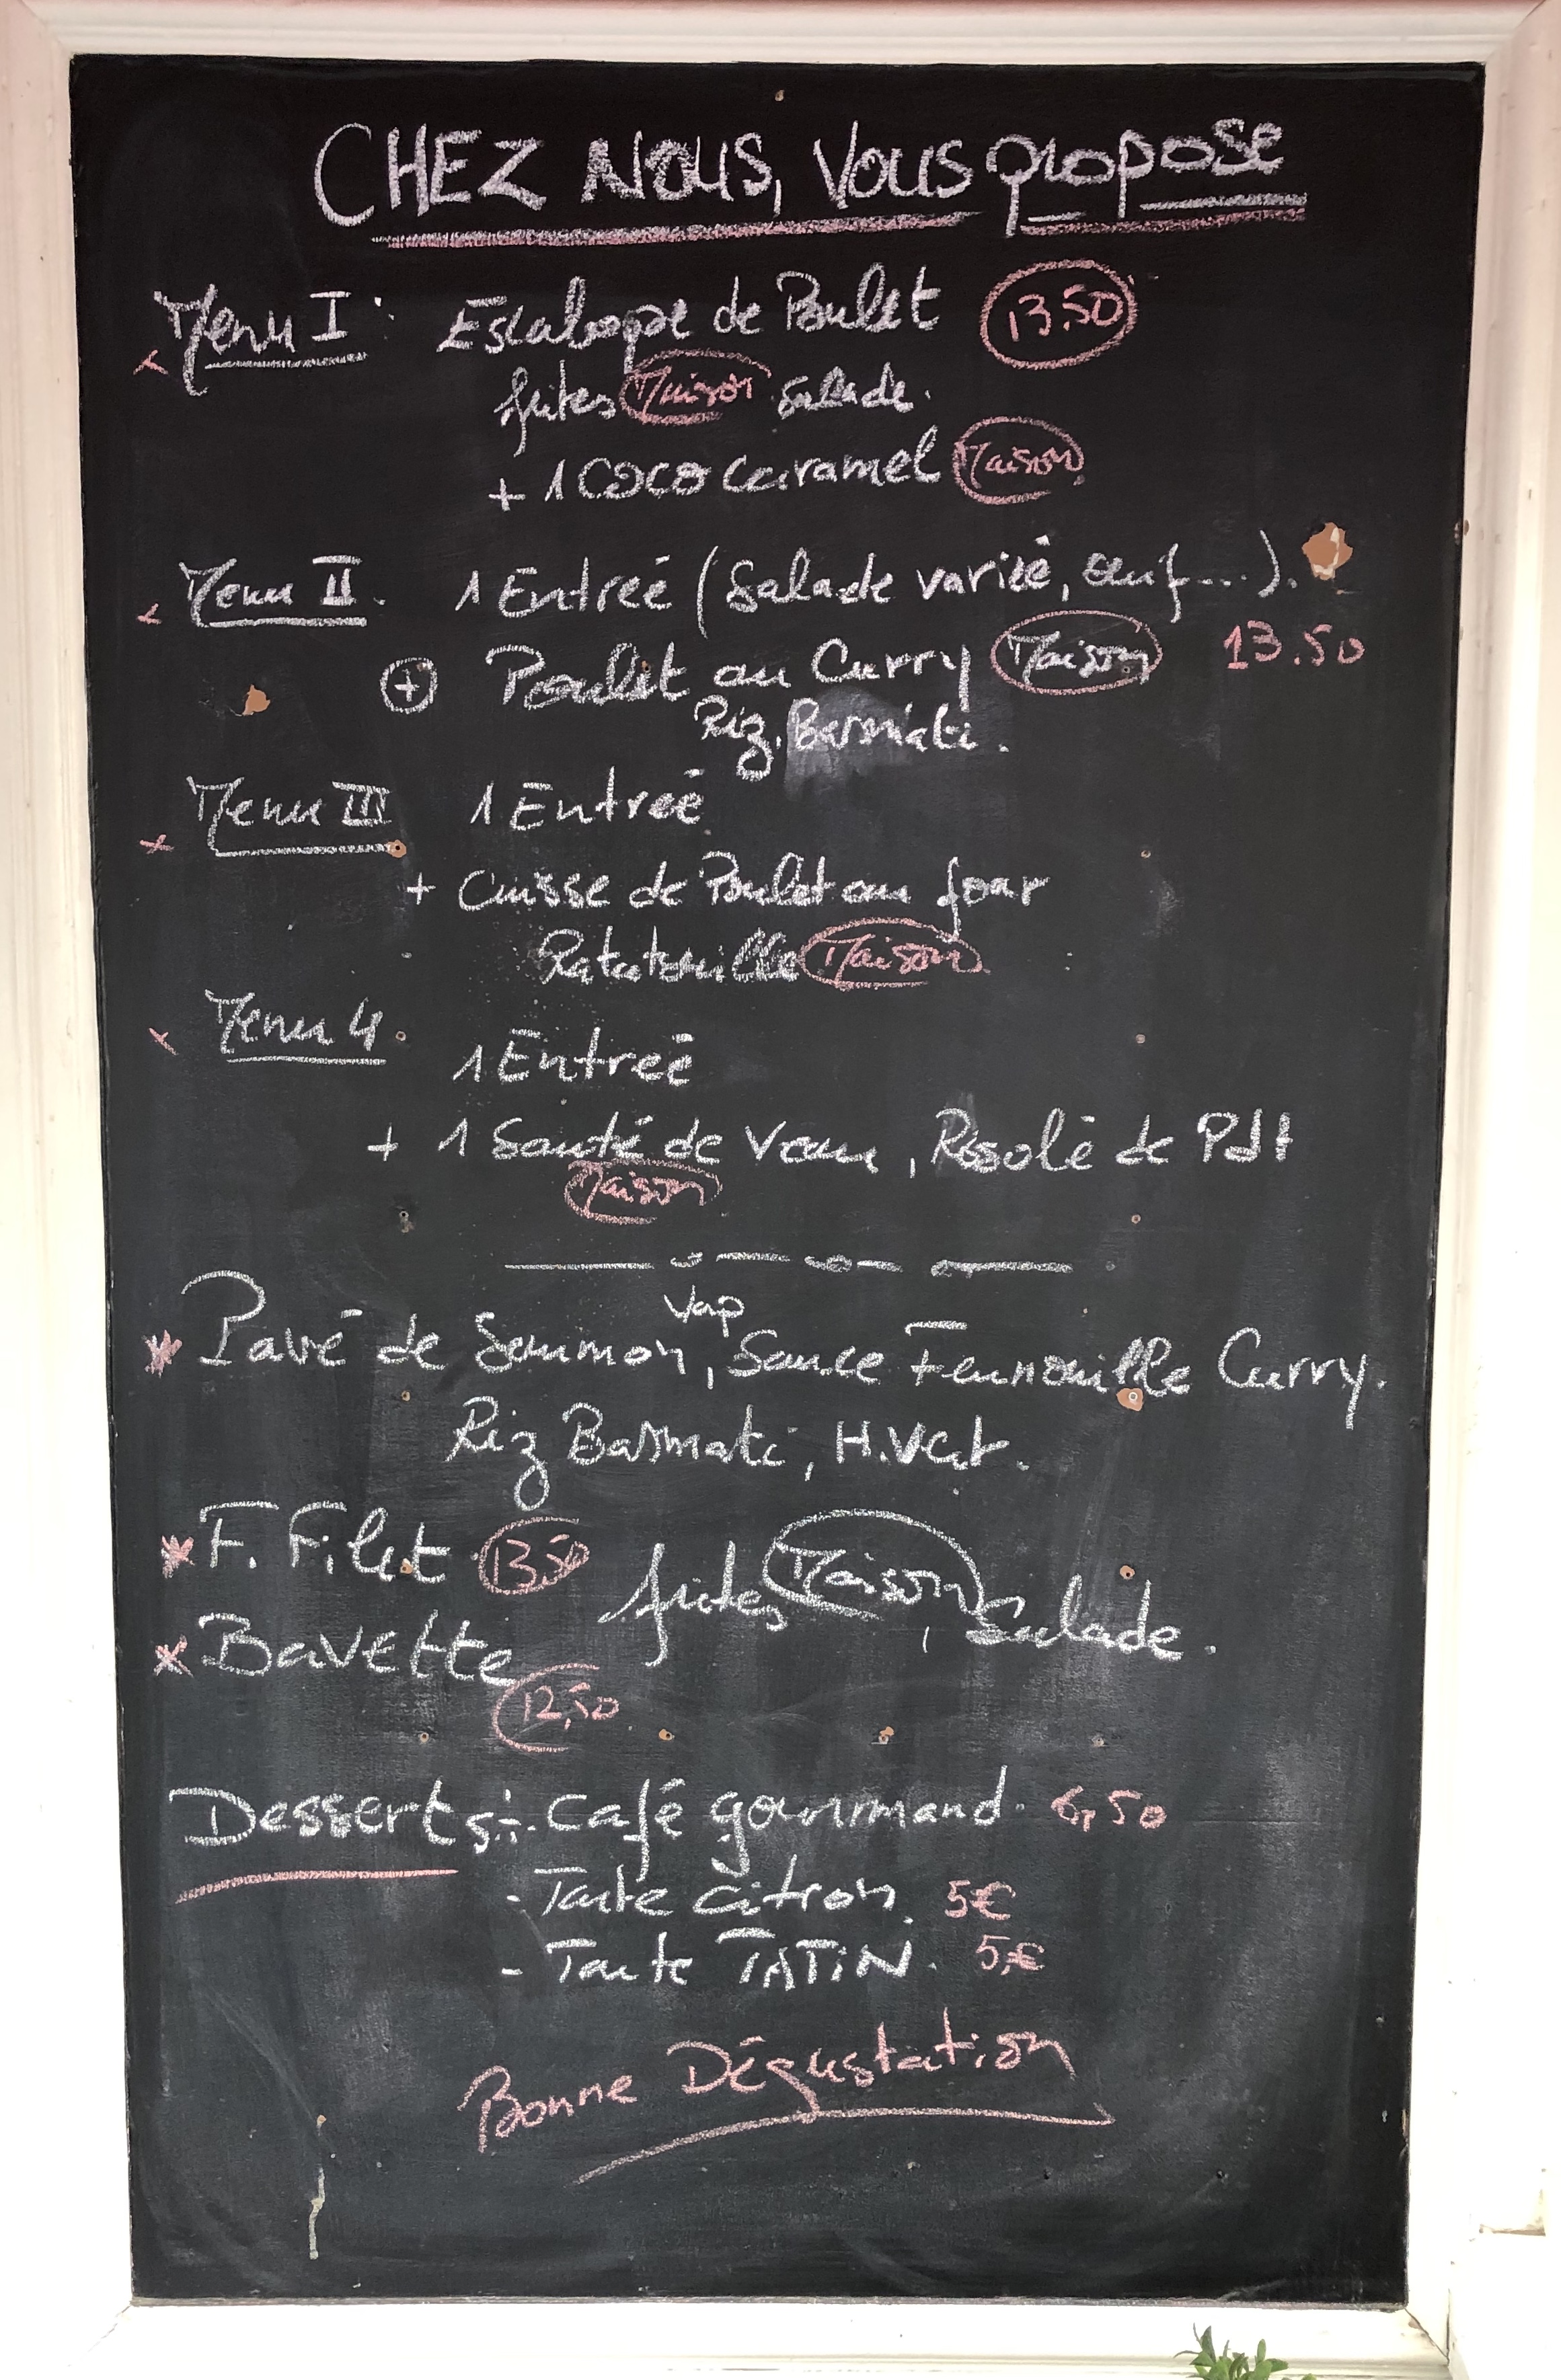 CHEZ NOUS, Vous propose
Menu I : Escalope de Poulet 13.50
frites Maison salade.
+ 1 coco caramel Maison
Menu II. 1 Entreé (Salade varieé, œuf...).
+ Poulet au Curry Maison 13.50
Riz, Basmati.
Menu III 1 Entreé
+ Cuisse de Poulet au four
Ratatouille Maison
Menu 4. 1 Entreé
+ 1 Sauté de Veau, Rissolé de Pdt
Maison
Vap
* Pavé de Saumon, Sauce Fennouille Curry.
Riz Basmati, H.Vert.
* F. Filet 13.50 frites Maison, Salade.
* Bavette
12,50
Desserts :- Café gourmand. 6,50
- Tarte citron. 5€
- Tarte TATIN. 5,€
Bonne Dégustation